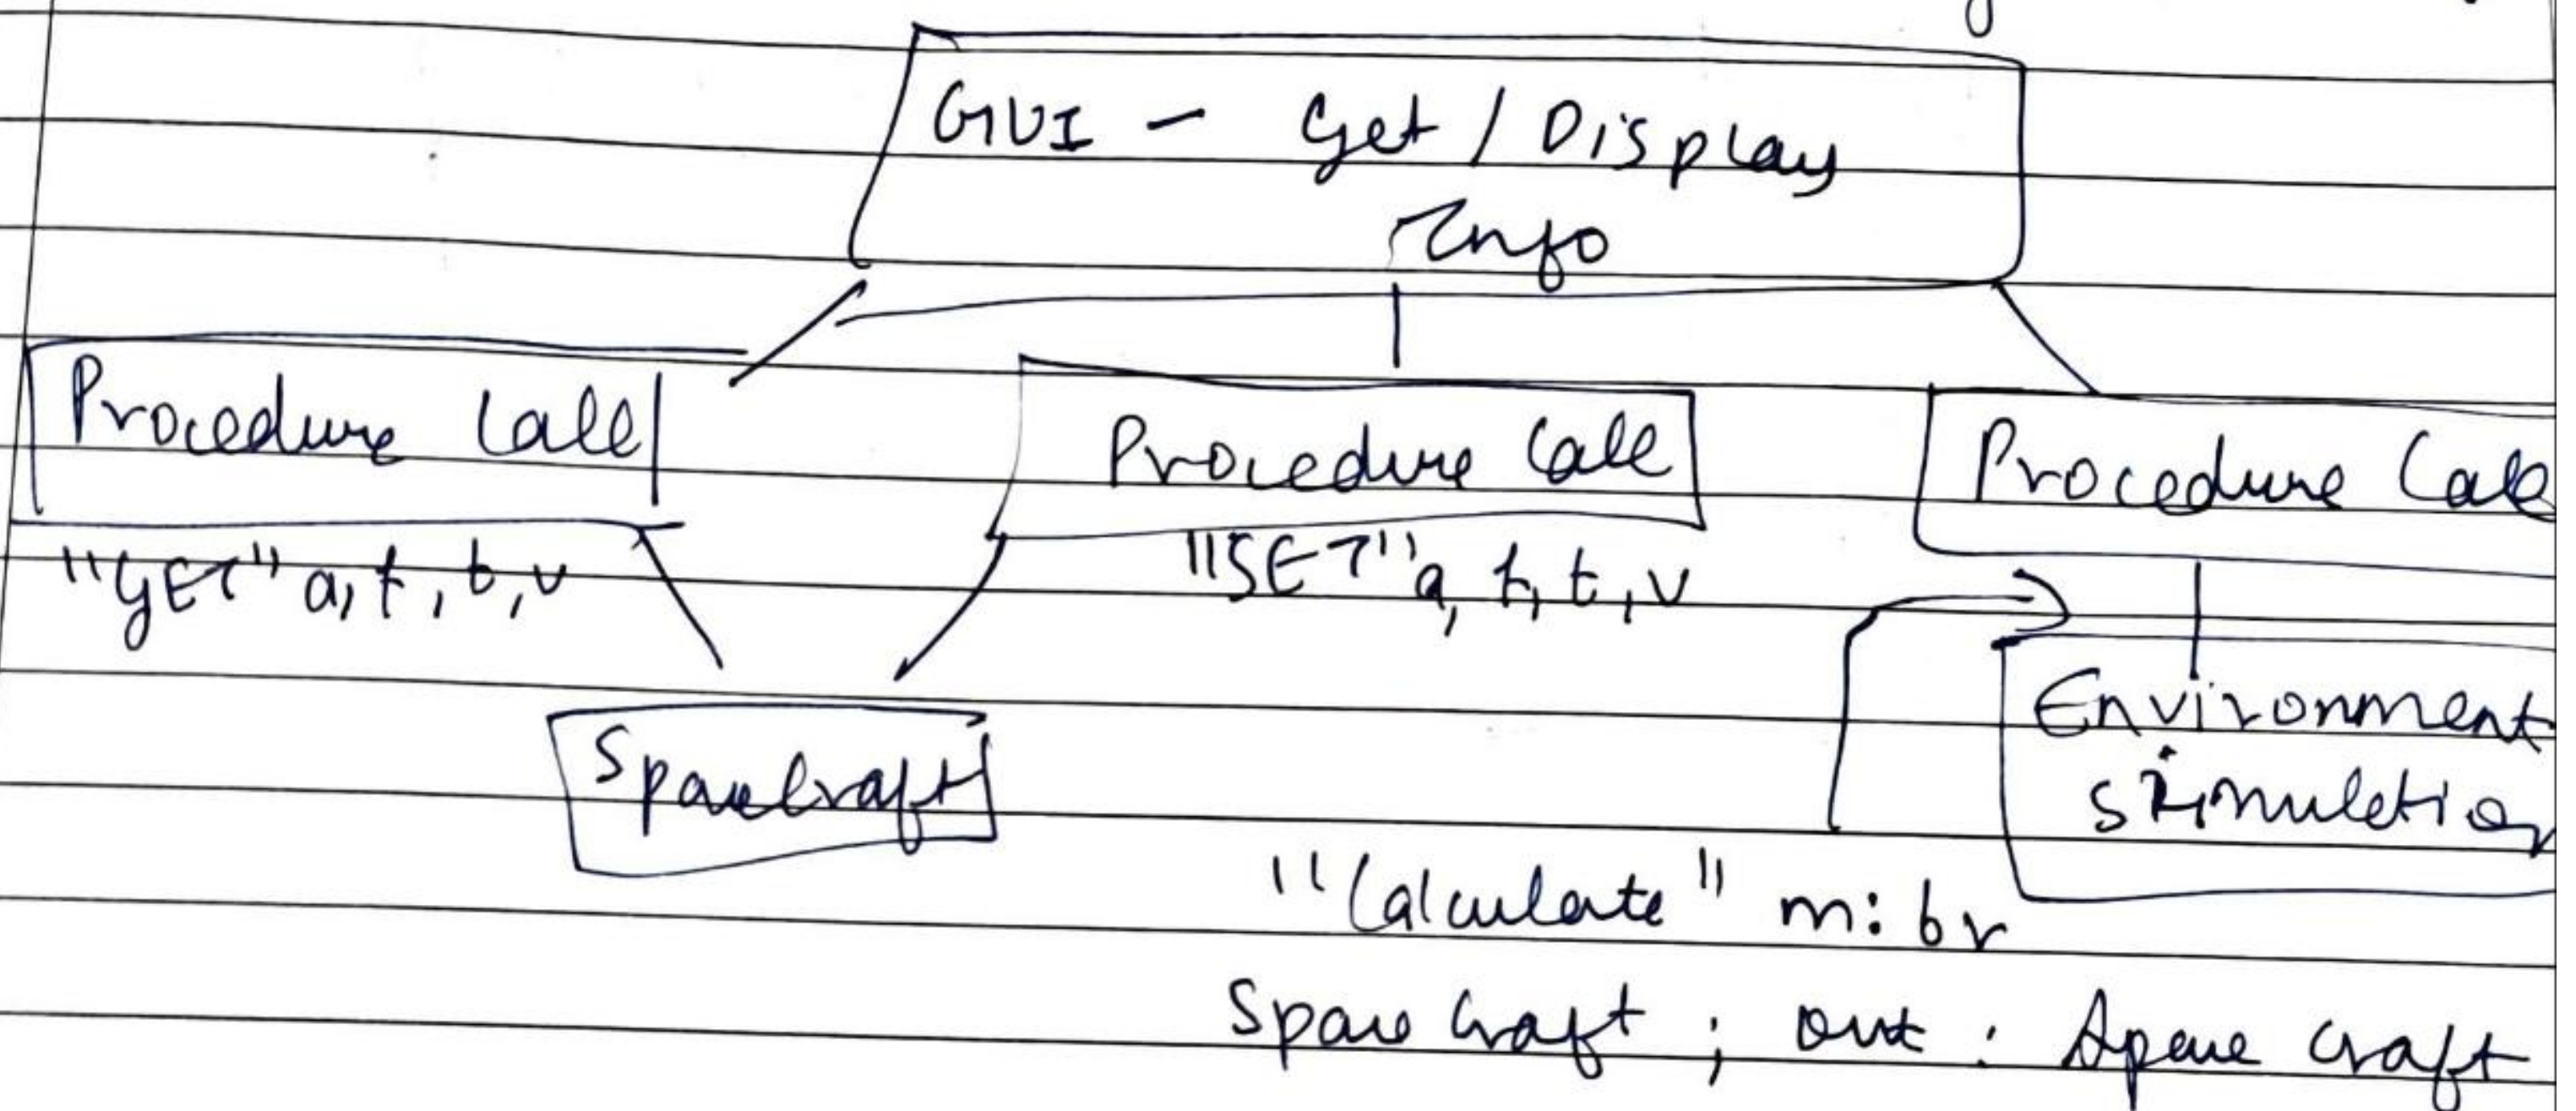 GUI - Get / Display
Info
Procedure Call
Procedure Call
Procedure Call
"GET" a, f, t, v
"SET" a, f, t, v
Environment
simulation
Spacecraft
"Calculate"
Space craft ; out : Space craft